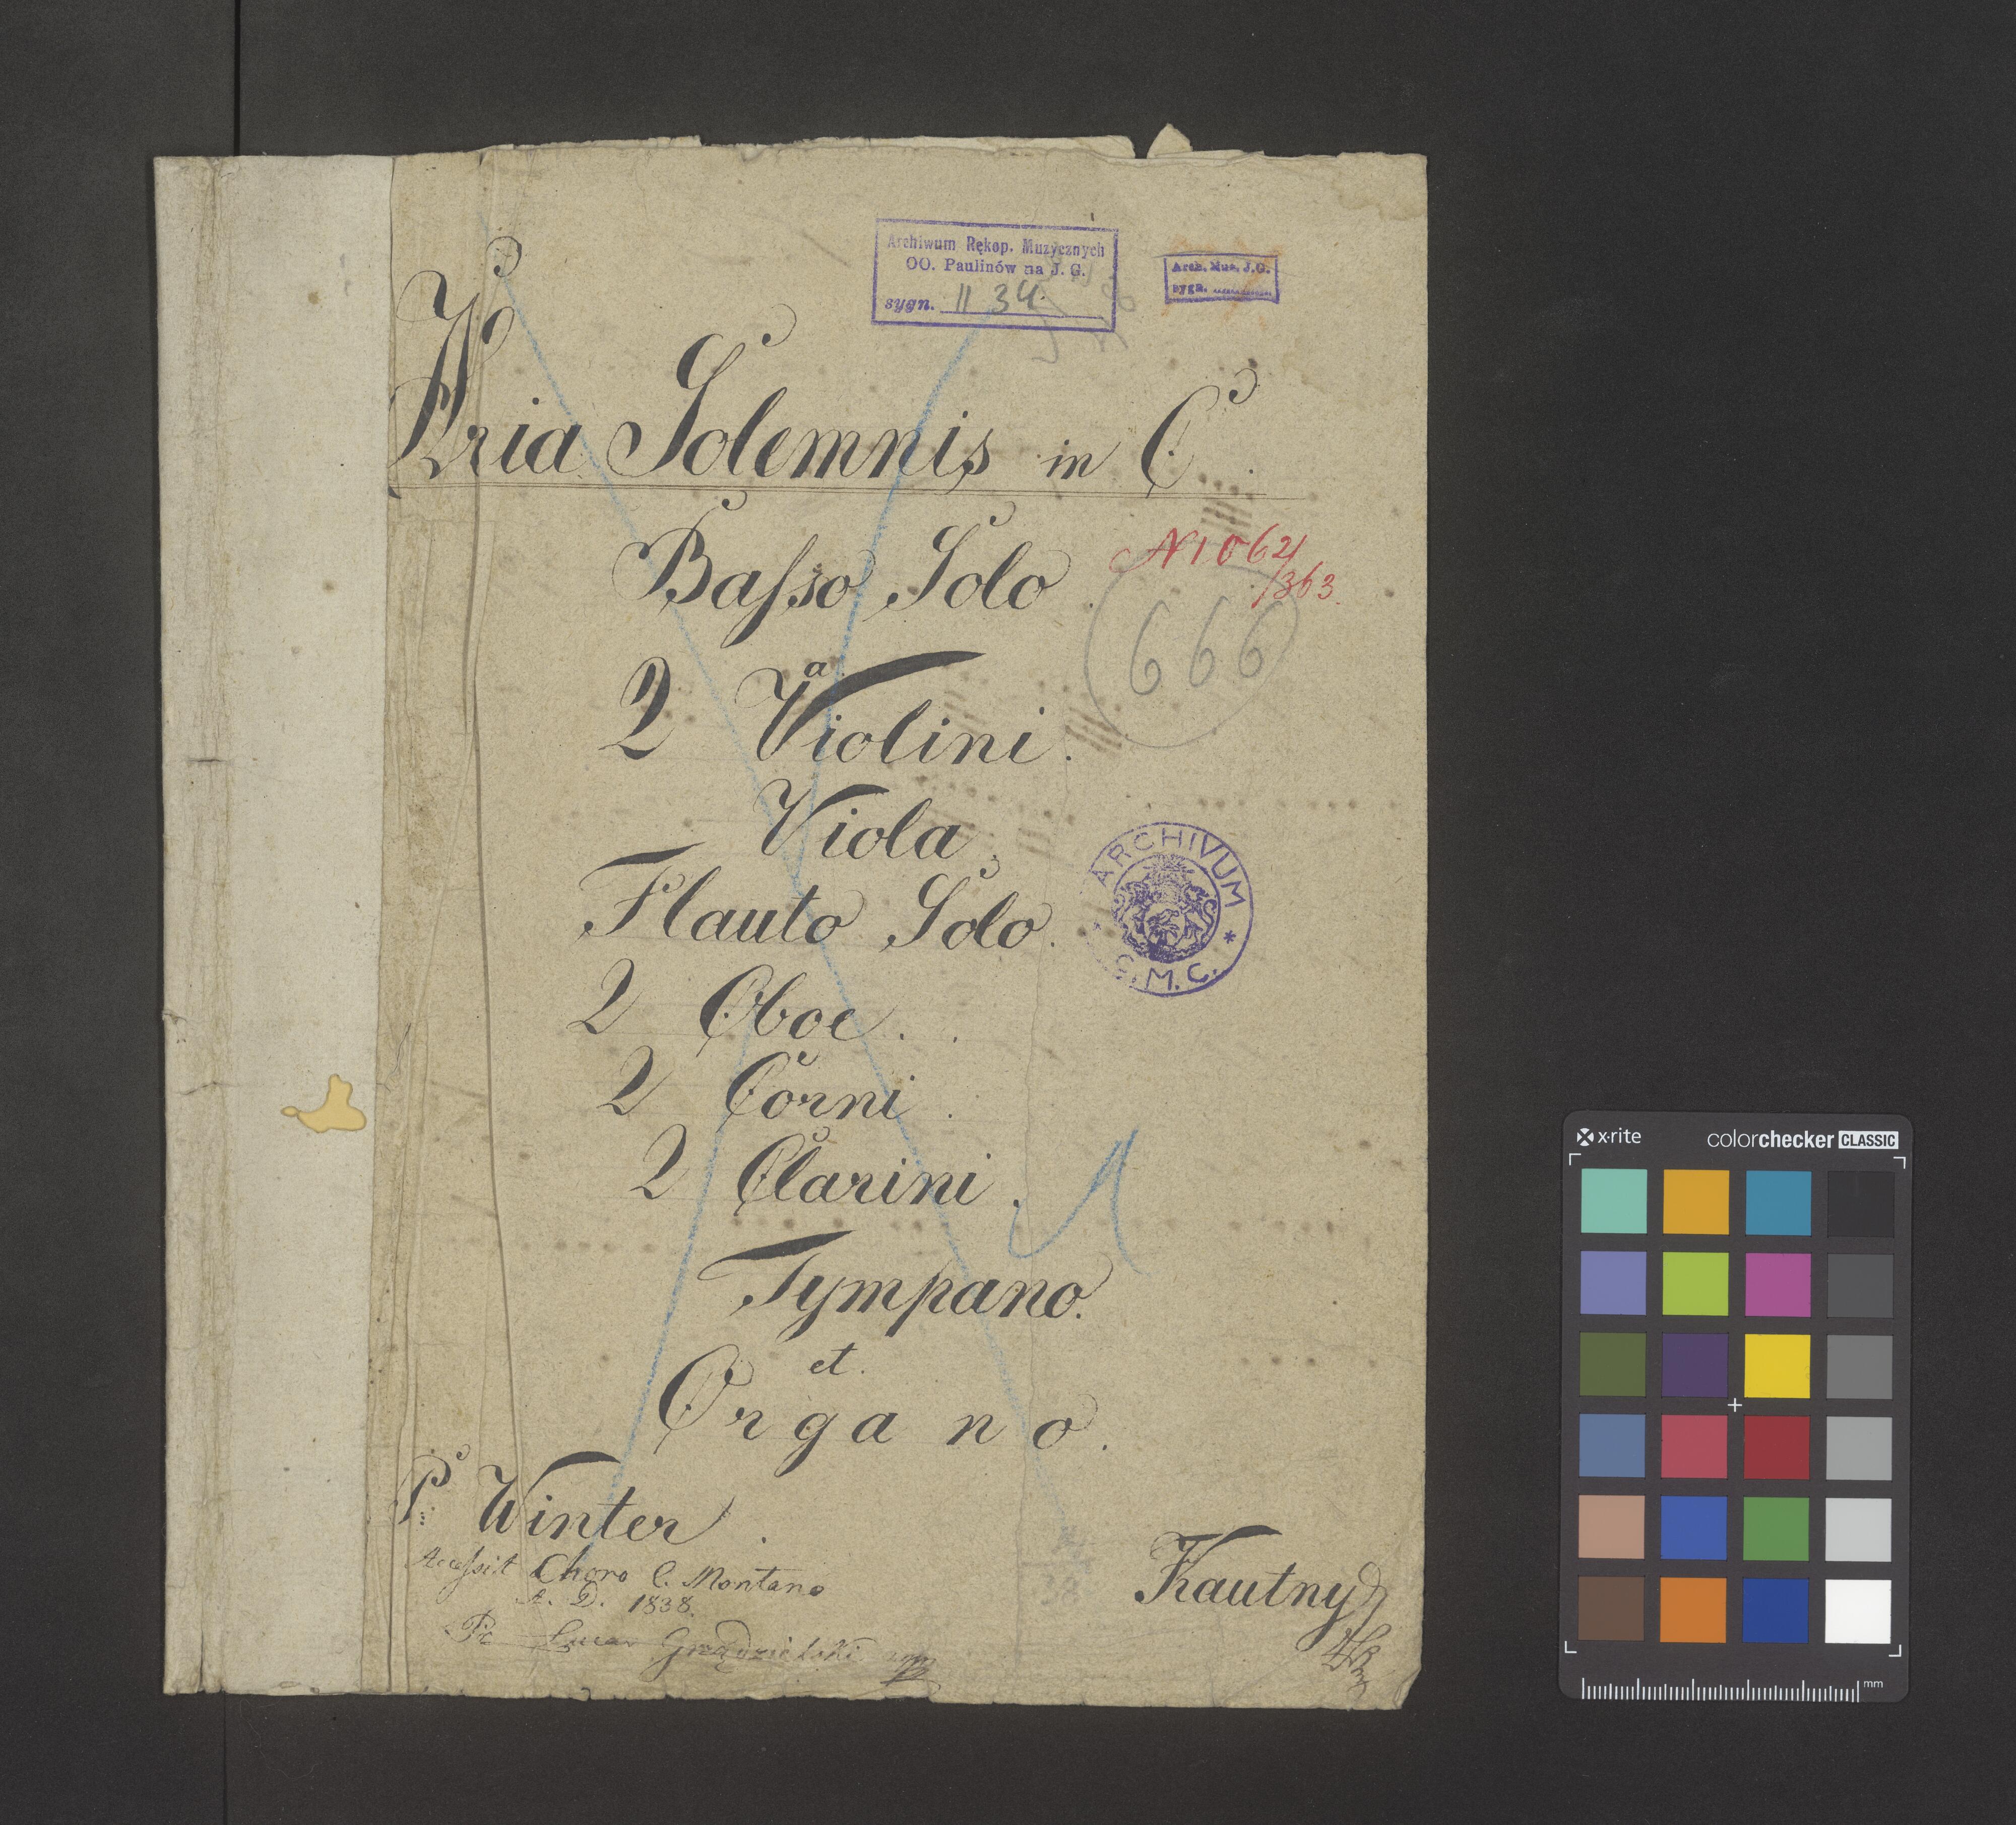 Archiwum Rękop. Muzycznych
OO. Paulinów na J. G.
sygn. II 34.
Arch. Muz. J.G.
sygn.
Aria Solemnis in C
Baſso Solo
N 1062/
/363.
666
2 Violini.
Viola
Flauto Solo.
ARCHIVUM
C.M.C.
2 Oboe.
2 Corni
2 Clarini.
Tympano.
et.
Organo.
P: Winter
Acceſsit Choro C. Montano
A. D. 1838.
Kautny